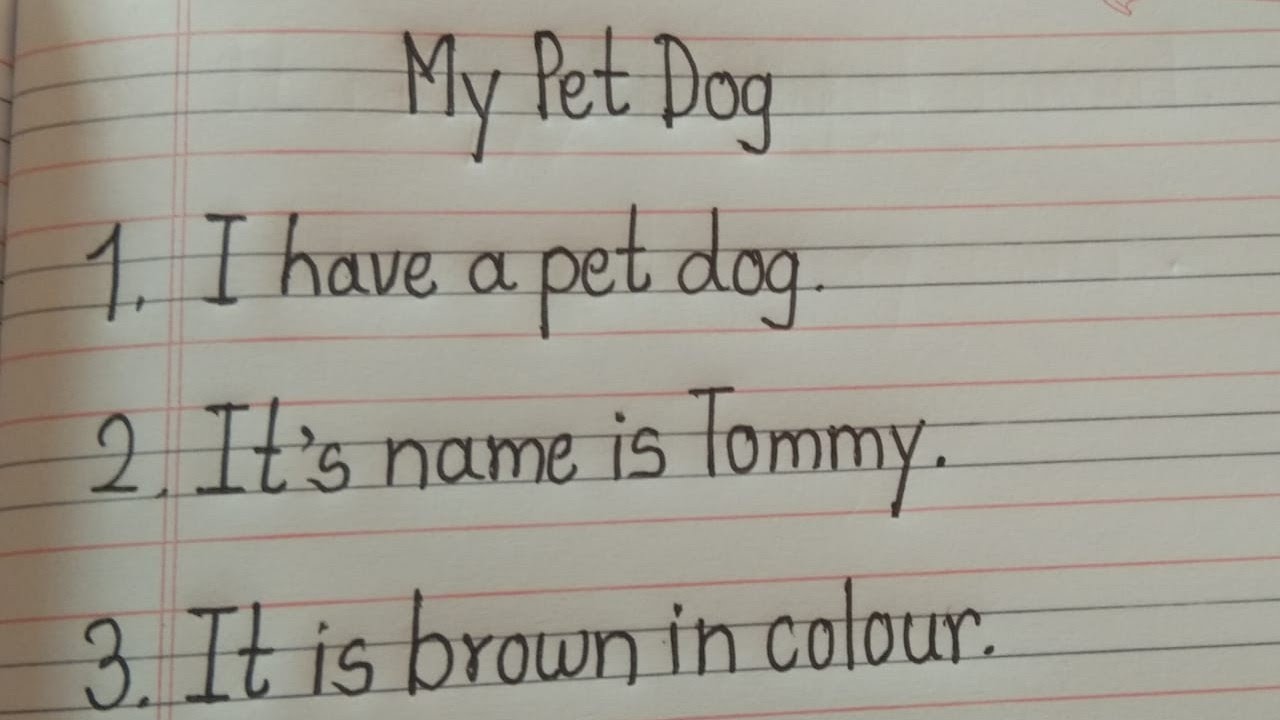 My Pet Dog
1. I have a pet dog.
2. It's name is Tommy.
3. It is brown in colour.